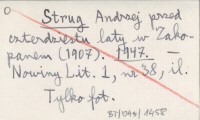 O
Strug Andrzej przed
czterdziestu laty w Zako-
panem (1907). 1947.
Nowiny Lit. 1, nr 38, il.
Tylko fot.
BJ/D49/1458